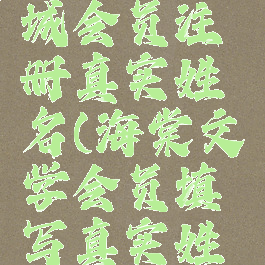 城会员注
册真实姓
名(海棠文
学会员填
写真实姓